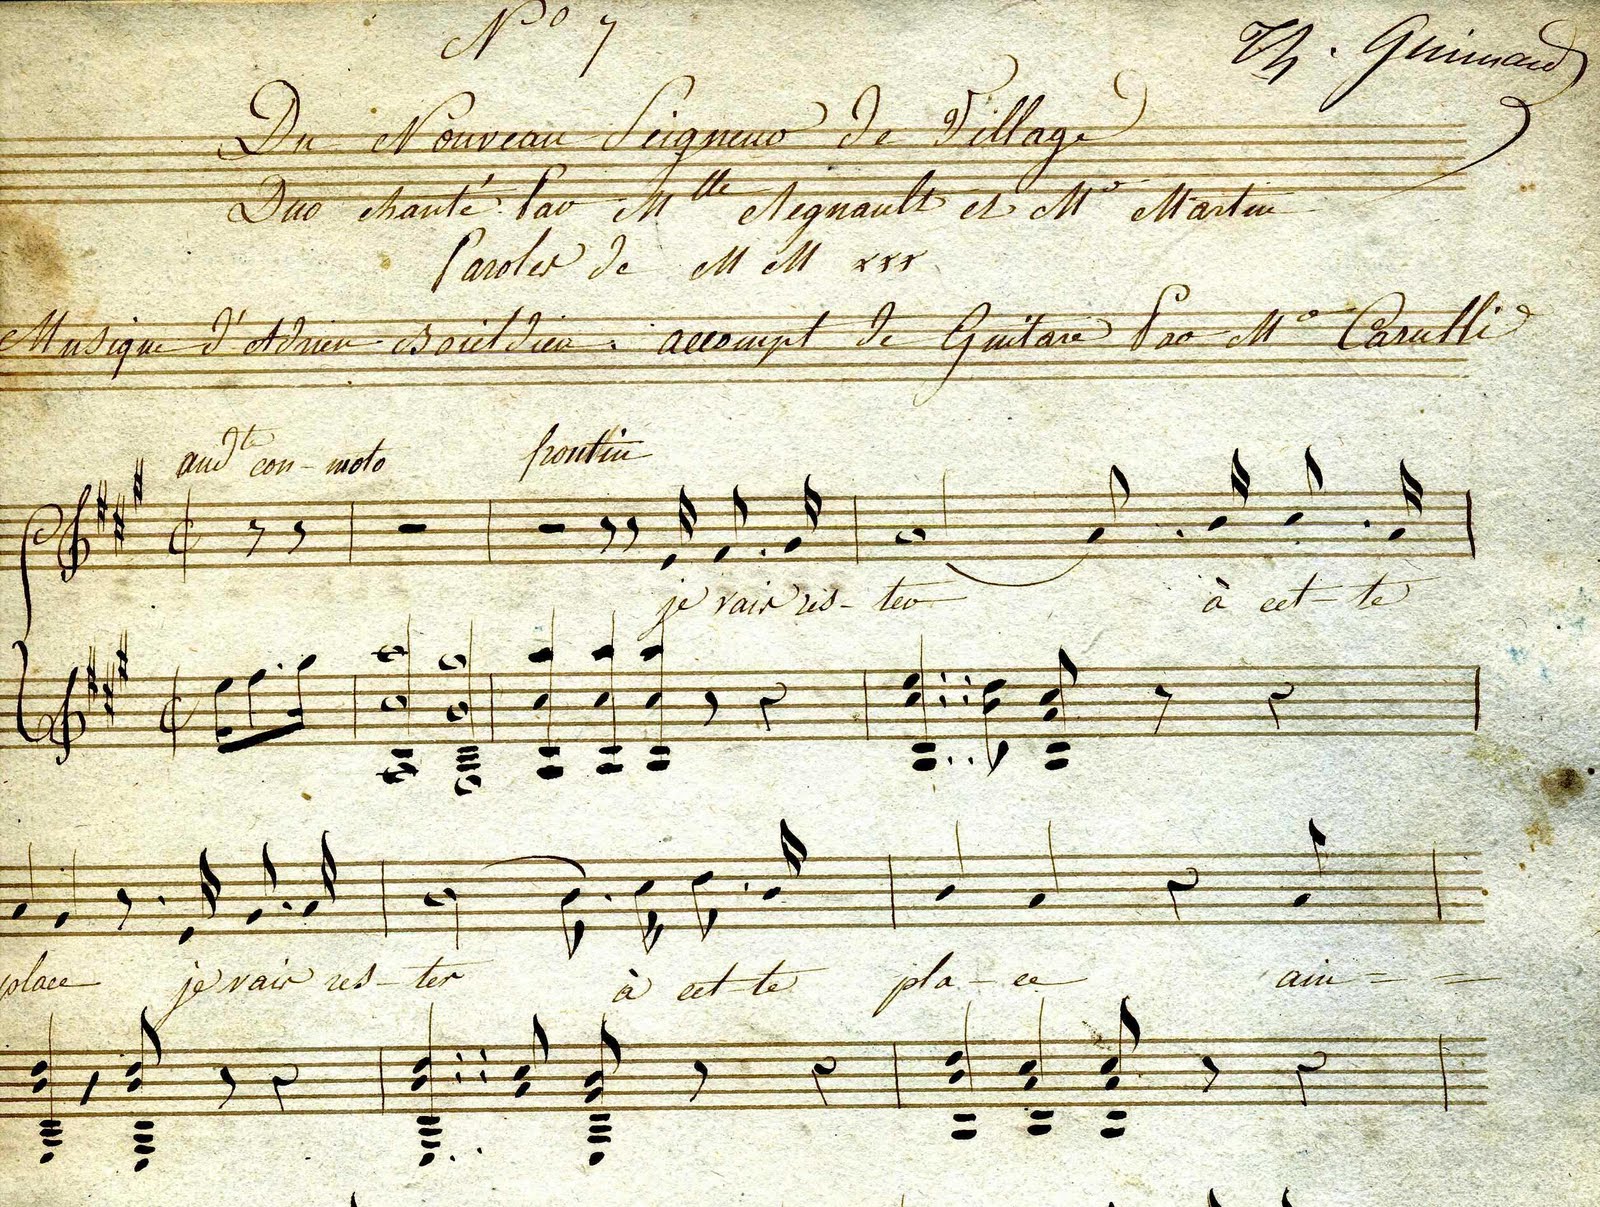 N° 7
Th. Guimard
Du Nouveau Seigneur de Village
Duo chanté Par Mlle Regnault et Mr Martin
Paroles de M M xxx
Musique d'Adrien Boieldieu . accompt de Guitare Par Mr Carulli
andte con-moto frontin
je vais res-ter à cet-te
place je vais res-ter à cet-te pla-ce ain=